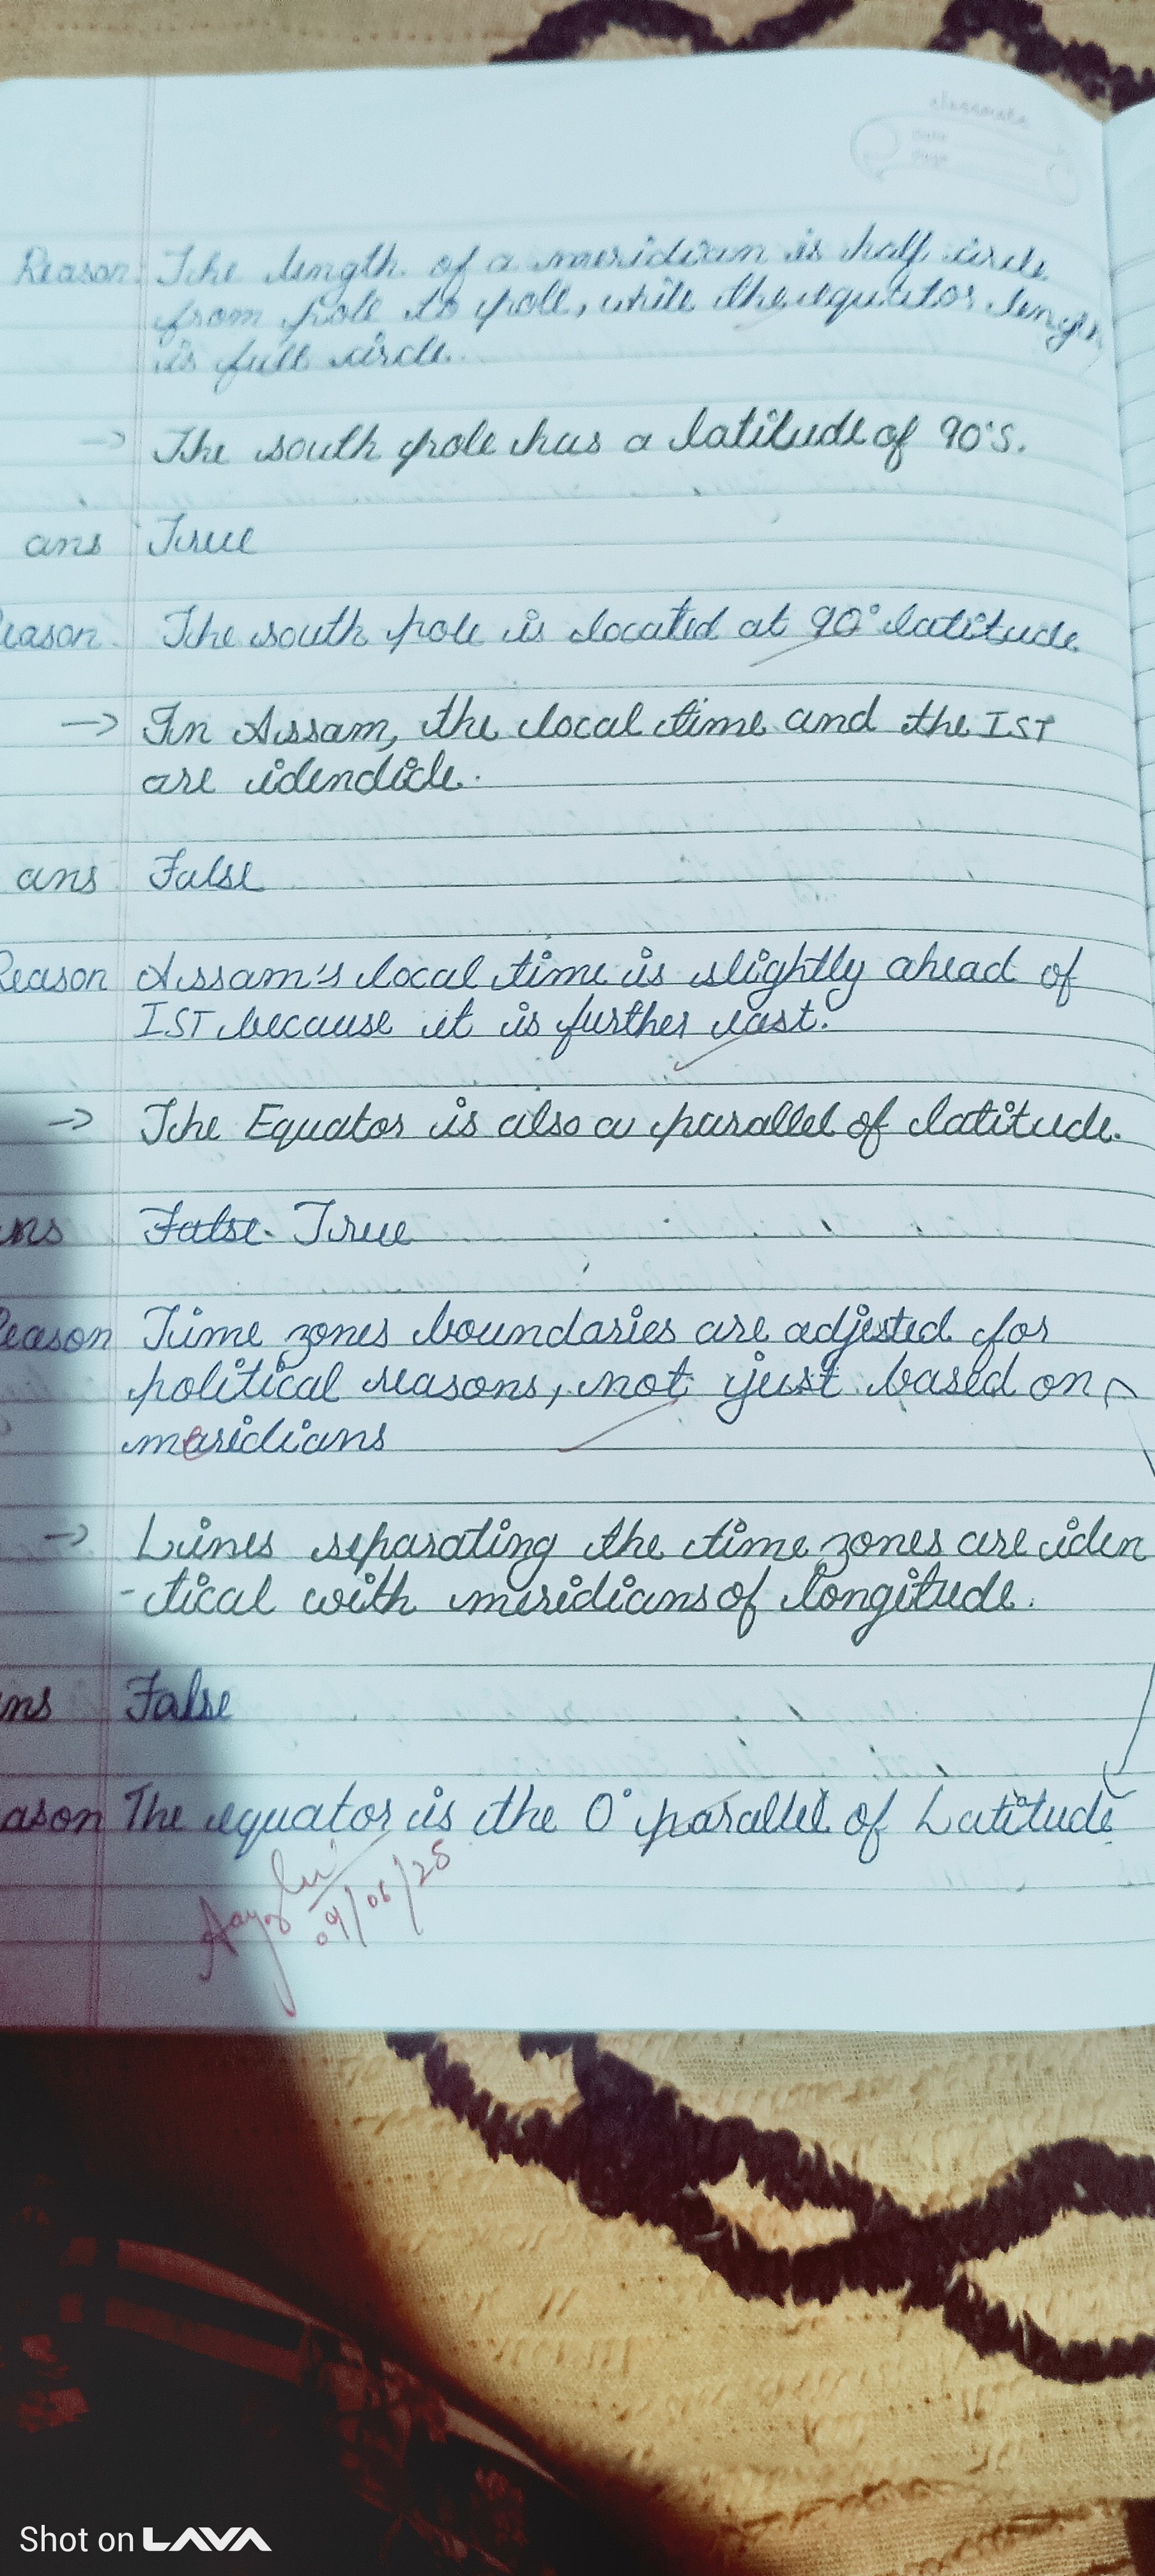 classmate
Date
Page
Reason: The length of a meridian is half circle
from pole to pole, while the equator length
is full circle.
→ The south pole has a latitude of 90°S.
ans True
eason. The south pole is located at 90° latitude.
→ In Assam, the local time and the IST
are idendicle.
ans False
Reason Assam's local time is slightly ahead of
IST because it is further east.
→ The Equator is also a parallel of latitude.
ans False. True
Reason Time zones boundaries are adjested for
political reasons, not just based on
meridians
→ Lines separating the time zones are iden
-tical with meridians of longitude.
ns False
ason The equator is the 0° parallel of Latitude
09/06/25
Shot on LAVA